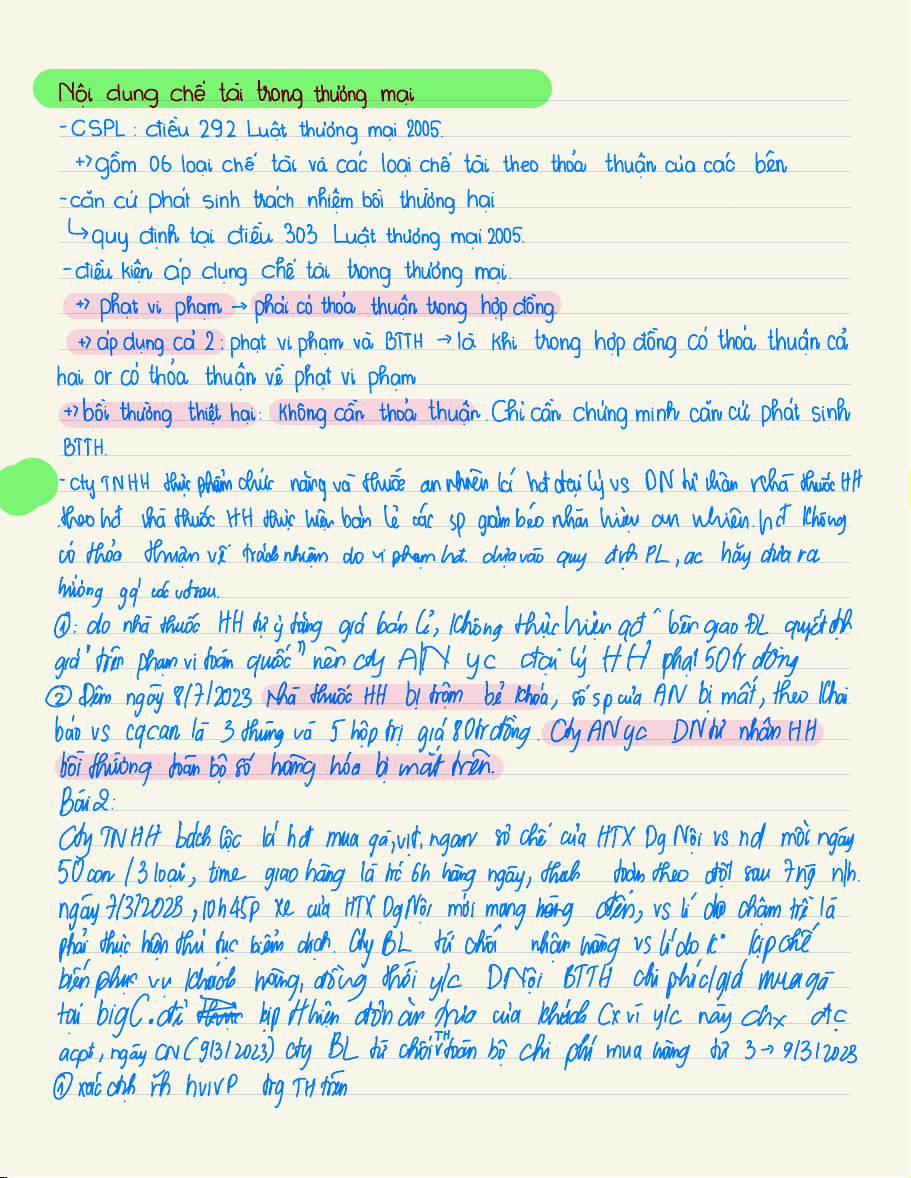 Nội dung chế tài trong thương mại
- CSPL : điều 292 Luật thương mại 2005.
+> gồm 06 loại chế tài và các loại chế tài theo thỏa thuận của các bên
- căn cứ phát sinh trách nhiệm bồi thường hại
↳ quy định tại điều 303 Luật thương mại 2005.
- điều kiện áp dụng chế tài trong thương mại.
+> phạt vi phạm → phải có thỏa thuận trong hợp đồng.
+> áp dụng cả 2 : phạt vi phạm và BTTH → là khi trong hợp đồng có thỏa thuận cả
hai or có thỏa thuận về phạt vi phạm
+> bồi thường thiệt hại : không cần thỏa thuận. Chỉ cần chứng minh căn cứ phát sinh
BTTH.
- cty TNHH thực phẩm chức năng và thuốc an nhiên kí hđ đại lý vs DN tư nhân nhà thuốc HH
. theo hđ nhà thuốc HH thực hiện bán lẻ các sp giảm béo nhãn hiệu an nhiên. hđ không
có thỏa thuận về trách nhiệm do vi phạm hđ. dựa vào quy định PL, ac hãy đưa ra
hướng gq các vđ sau.
①: do nhà thuốc HH tự ý tăng giá bán lẻ, không thực hiện qđ "bên giao ĐL quyết định
giá "trên phạm vi toàn quốc" nên cty AN yc đại lý HH phạt 50tr đồng
② Đêm ngày 8/7/2023 nhà thuốc HH bị trộm bẻ khóa, số sp của AN bị mất, theo khai
báo vs cqcan là 3 thùng và 5 hộp trị giá 80tr đồng. Cty AN yc DN tư nhân HH
bồi thường toàn bộ số hàng hóa bị mất trên.
Bài 2:
Cty TNHH bách lộc kí hđ mua gà, vịt, ngan sơ chế của HTX Dg Nội vs nd mỗi ngày
50 con / 3 loại, time giao hàng là trc 6h hàng ngày, thanh toán theo đợt sau 7 ng n/h.
ngày 7/3/2023, 10h45p xe của HTX Dg Nội mới mang hàng đến, vs lí do chậm trễ là
phải thực hiện thủ tục kiểm dịch. Cty BL từ chối nhận hàng vs lí do k° kịp chế
biến phục vụ khách hàng, đồng thời y/c D Nội BTTH chi phí c/l giá mua gà
tại bigC. để kịp thiện đơn ăn trưa của khách Cx vì y/c này chx đtc
acpt, ngày CN (9/3/2023) cty BL từ chối TH toàn bộ chi phí mua hàng từ 3 → 9/3/2023
① xác định hvivP trg TH trên